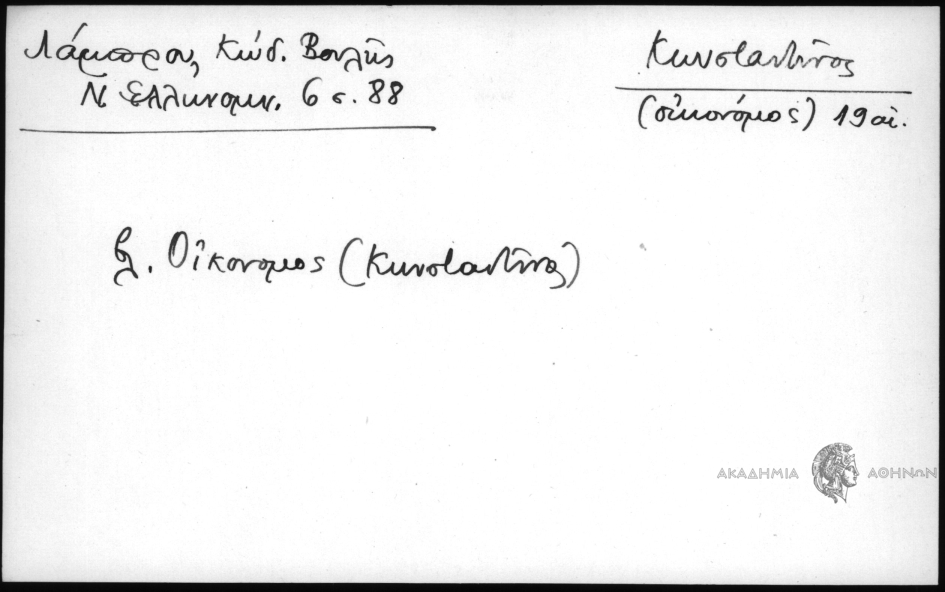 Λάμπρου, Κώδ. Βουλῆς
Ν. Ἑλληνομν. 6 σ. 88
Κωνσταντῖνος
(οἰκονόμος) 19 αἰ.
βλ. Οἰκονόμος (Κωνσταντῖνος)
ΑΚΑΔΗΜΙΑ ΑΘΗΝΩΝ